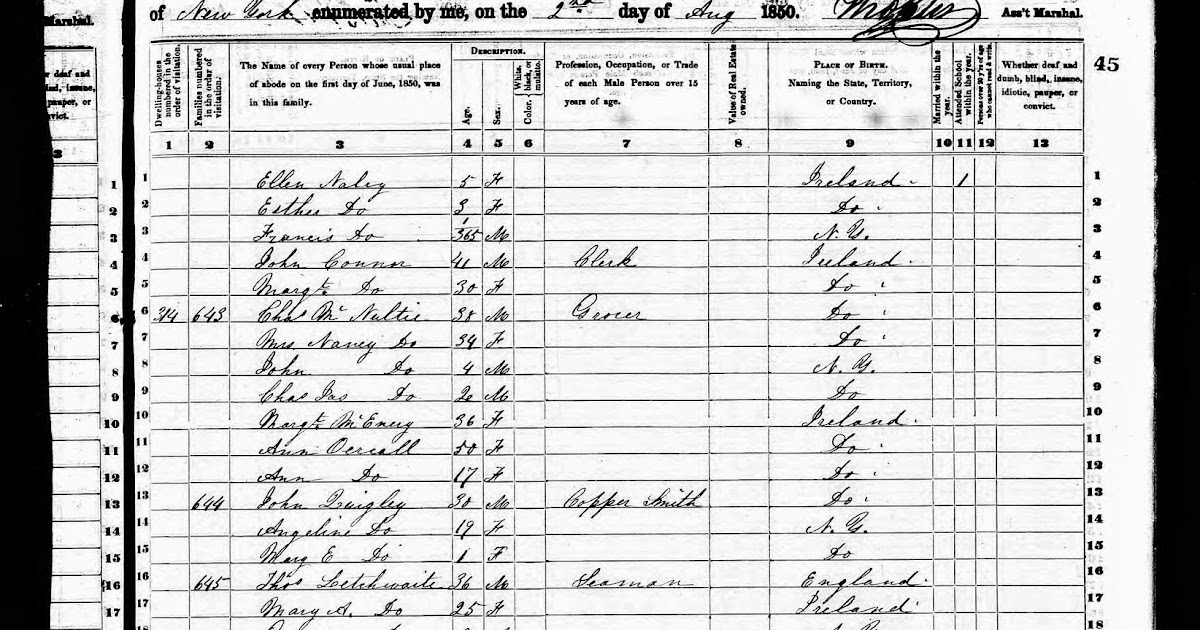 of New York enumerated by me, on the 2nd day of Aug 1850. Ass't Marshal.
Marshal.
45
Dwelling-houses numbered in the order of visitation.
Families numbered in the order of visitation.
The Name of every Person whose usual place of abode on the first day of June, 1850, was in this family.
DESCRIPTION.
Age.
Sex.
Color. White, black, or mulatto.
Profession, Occupation, or Trade of each Male Person over 15 years of age.
Value of Real Estate owned.
PLACE OF BIRTH. Naming the State, Territory, or Country.
Married within the year.
Attended School within the year.
Persons over 20 y'rs of age who cannot read & write.
Whether deaf and dumb, blind, insane, idiotic, pauper, or convict.
1 2 3 4 5 6 7 8 9 10 11 12 13
1 1 Ellen 5 F Ireland 1 1
2 2 Esther Do 3 F Do 2
3 3 Francis Do 1/365 M N.Y. 3
4 4 John Connor 41 M Clerk Ireland 4
5 5 Margt. Do 30 F Do 5
6 314 643 Chas Mc Nultie 38 M Grocer Do 6
7 7 Mrs Nancy Do 34 F Do 7
8 8 John Do 4 M N.Y. 8
9 9 Chas Jas Do M Do 9
10 10 Margt. McEnery 36 F Ireland 10
11 11 Ann 50 F Do 11
12 12 Ann Do 17 F Do 12
13 13 644 John Quigley 30 M Copper Smith Do 13
14 14 Angeline Do 19 F N.Y. 14
15 15 Mary E Do 1 F Do 15
16 16 645 Thos Letchwaite 36 M Seaman England 16
17 17 Mary A. Do 25 F Ireland 17
18 18